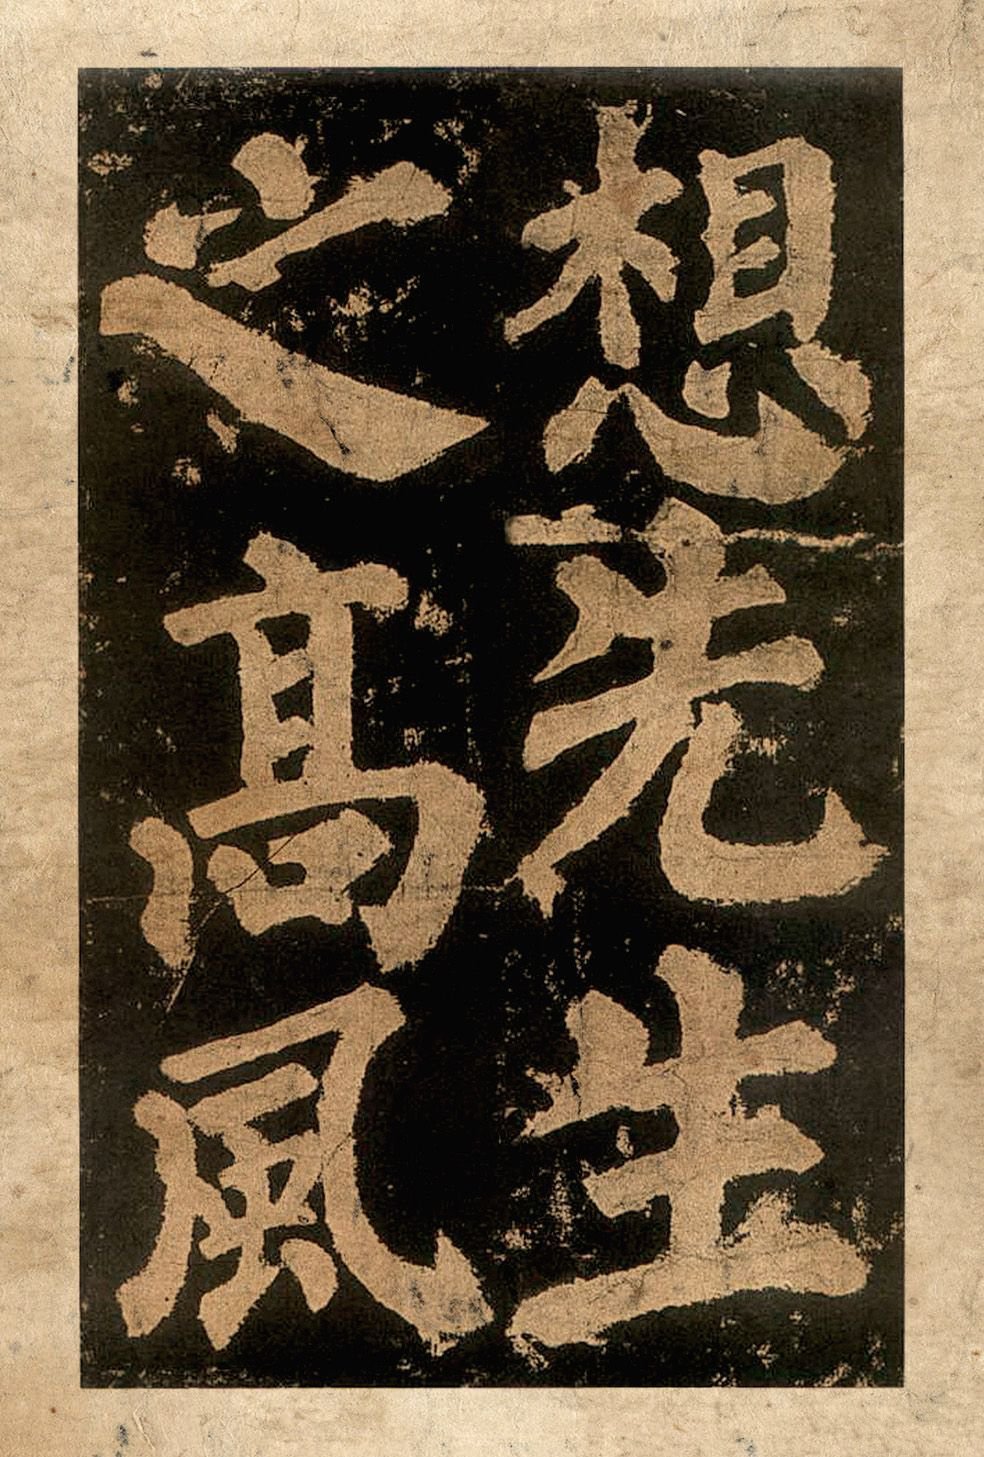 想先生
之高風